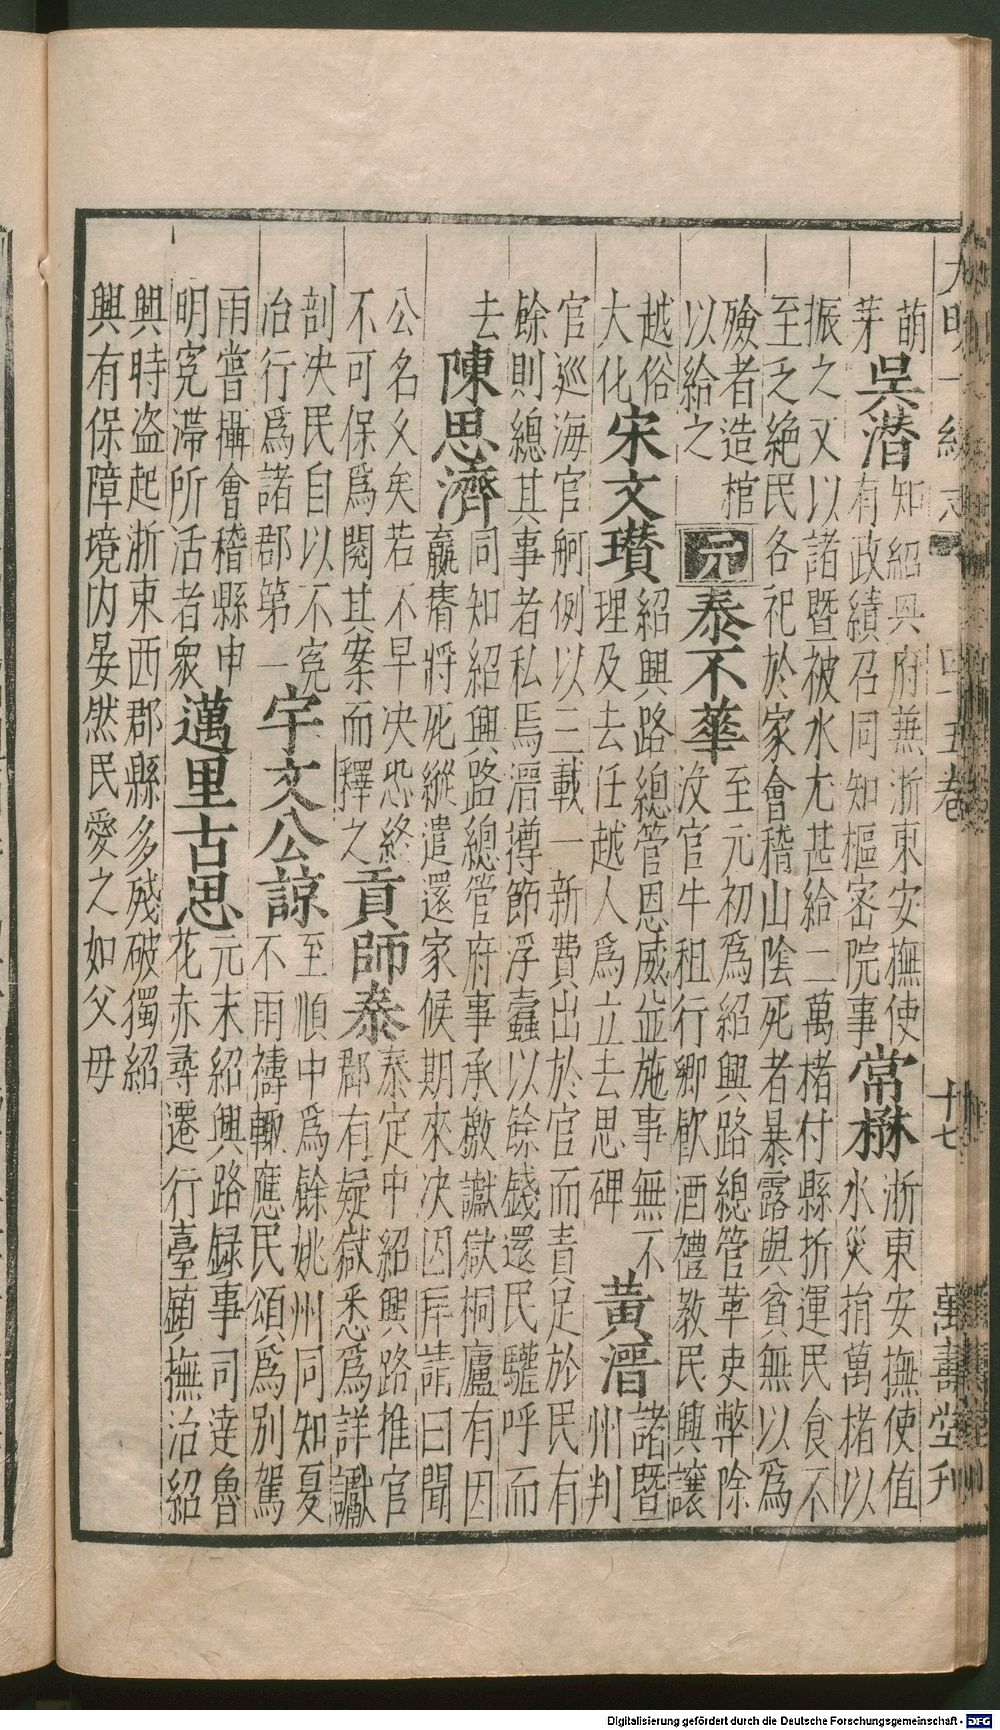 大明一統志 四十五卷 十七 萬壽堂刊
萌
芽
吳潛
知紹興府兼浙東安撫使
有政績召同知樞密院事
常楙
浙東安撫使值
水災捐萬楮以
振之又以諸暨被水尤甚給二萬楮付縣折運民食不
至乏絶民各祀於家會稽山陰死者暴露與貧無以爲
殮者造棺
以給之
元
泰不華
至元初爲紹興路總管革吏弊除
沒官牛租行鄉飲酒禮教民興讓
越俗
大化
宋文瓚
紹興路總管恩威並施事無不
理及去任越人爲立去思碑
黄溍
諸暨
州判
官巡海官舸例以三載一新費出於官而責足於民有
餘則總其事者私焉溍撙節浮蠹以餘錢還民驩呼而
去
陳思濟
同知紹興路總管府事承檄讞獄桐廬有因
羸瘠將死縱遣還家候期來决因拜請曰聞
公名乆矣若不早决恐終
不可保爲閱其案而釋之
貢師泰
泰定中紹興路推官
郡有疑獄悉爲詳讞
剖决民自以不寃
治行爲諸郡第一
宇文公諒
至順中爲餘姚州同知夏
不雨禱輙應民頌爲别駕
雨嘗攝會稽縣申
明寃滯所活者衆
邁里古思
元末紹興路録事司達魯
花赤尋遷行臺鎮撫治紹
興時盗起浙東西郡縣多殘破獨紹
興有保障境内晏然民愛之如父母
Digitalisierung gefördert durch die Deutsche Forschungsgemeinschaft - DFG